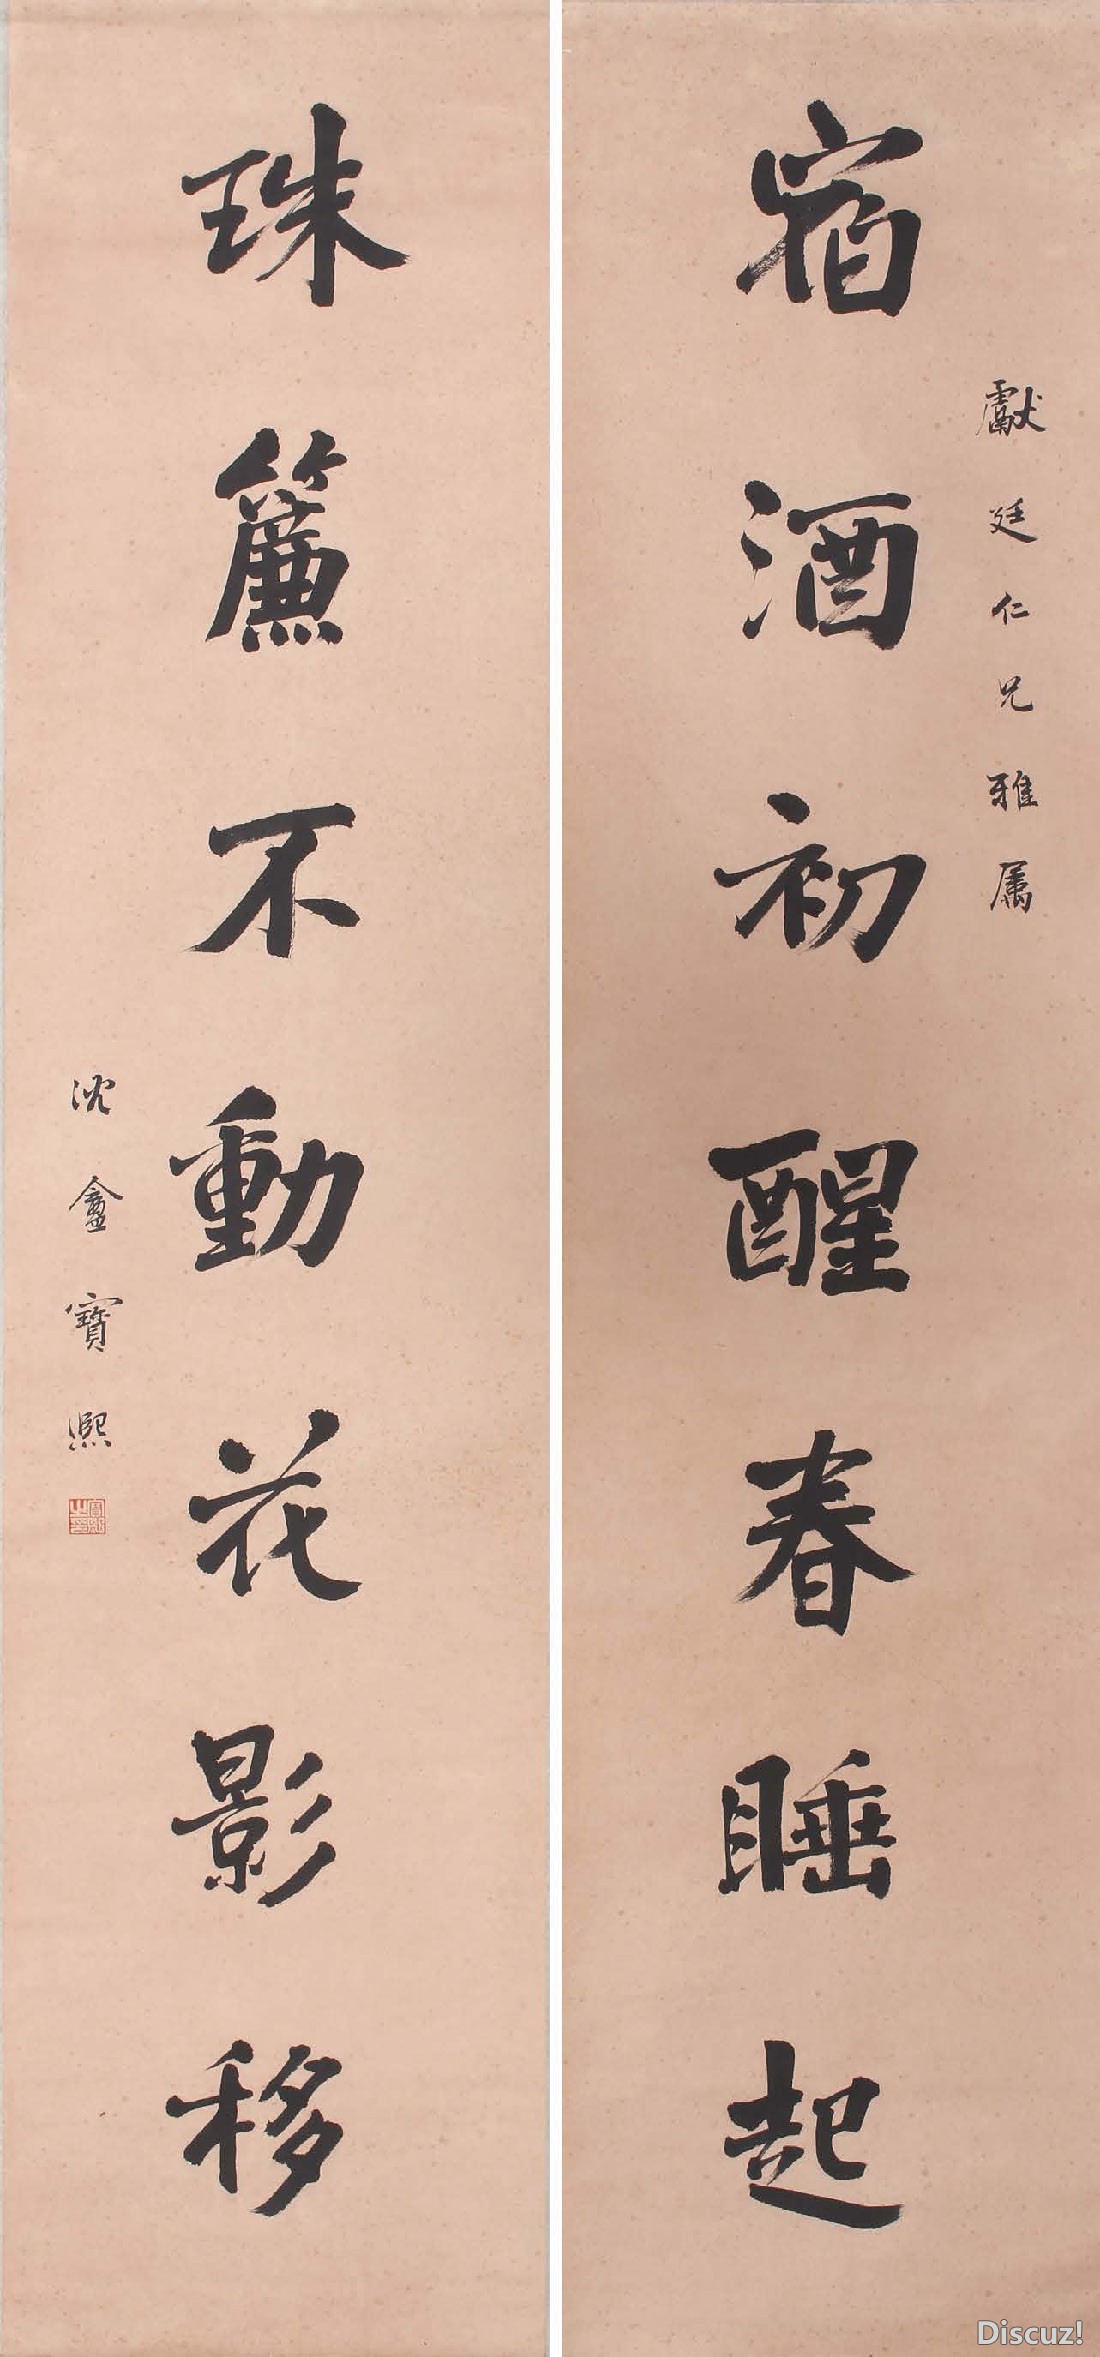 獻廷仁兄雅属
宿酒初醒春睡起
珠簾不動花影移
沈盦寶熙
Discuz!